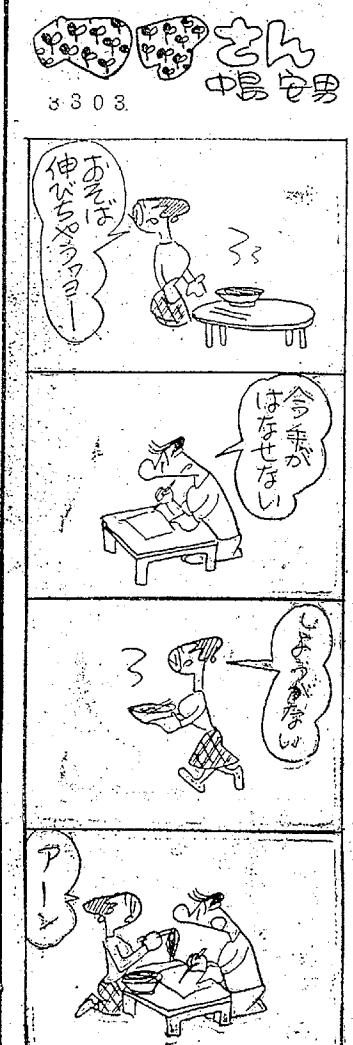 さん
中島安男
3303
おそば
伸びちゃうヨー
今手が
はなせない
しょうがない
アーン